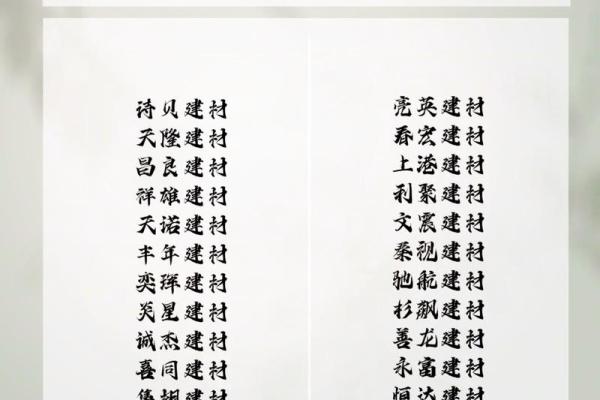 诗贝建材
天隆建材
昌良建材
祥雄建材
天诺建材
丰年建材
奕珲建材
炎星建材
诚杰建材
喜同建材
亮英建材
春宏建材
上港建材
利聚建材
文震建材
秦视建材
驰航建材
杉飙建材
善龙建材
永富建材
恒达建材